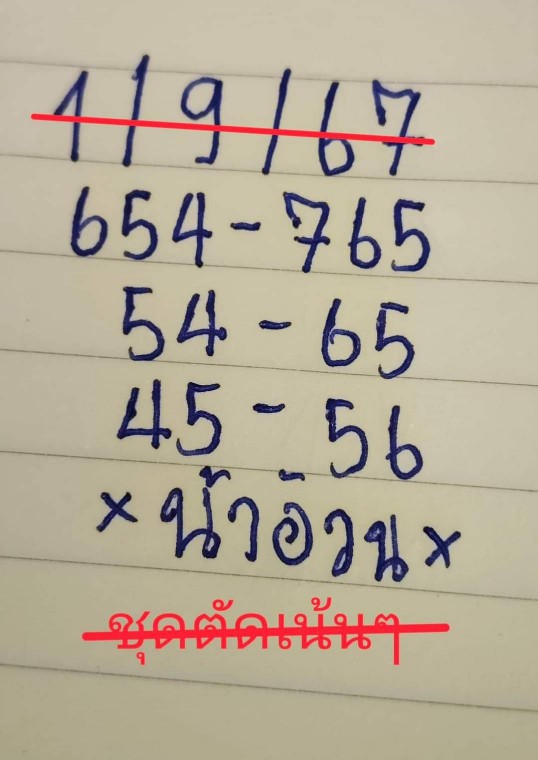 1/9/67
654-765
54-65
45-56
×น้าอ้วน×
ชุดตัดเน้นๆ